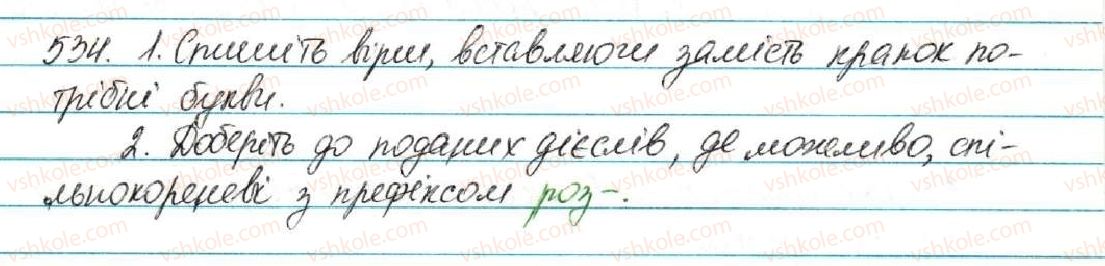 534. 1. Спишіть вірш, вставляючи замість крапок по-
трібні букви.
2. Доберіть до поданих дієслів, де можливо, спі-
льнокореневі з префіксом роз-.